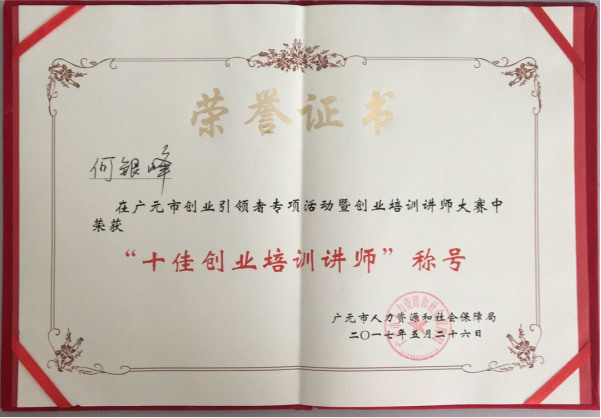 荣誉证书
何银峰
在广元市创业引领者专项活动暨创业培训讲师大赛中
荣获
“十佳创业培训讲师”称号
广元市人力资源和社会保障局
二〇一七年五月二十六日